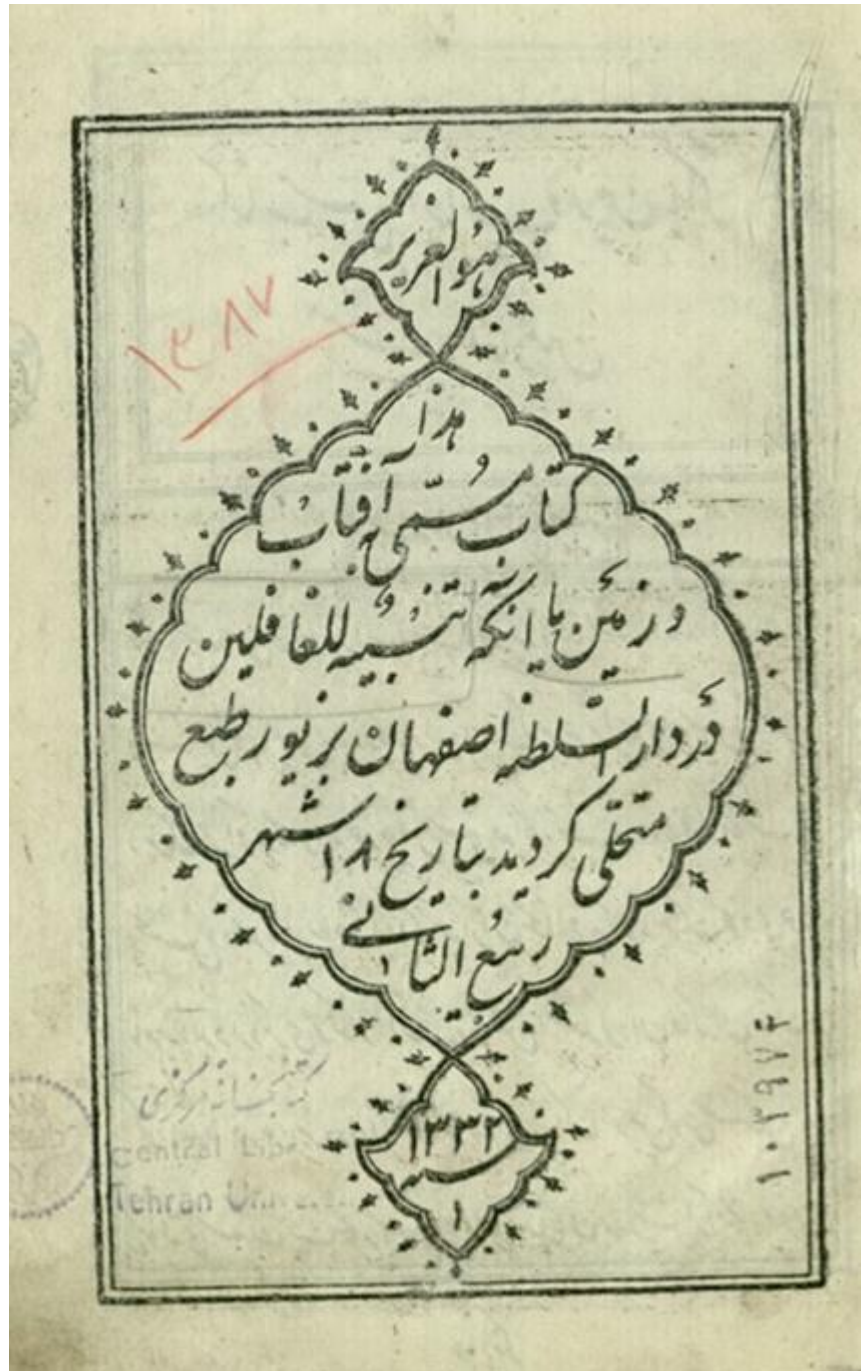 هو العزیز
۱۳۸۷
هذا
کتاب مسمّی به آفتاب
و زمین یا آنکه تنبیه للغافلین
در دار السّلطنه اصفهان بزیور طبع
متحلّی گردید بتاریخ ۱۸ شهر
ربیع الثانی
۱۳۳۲
کتابخانه مرکزی
Central
Tehran